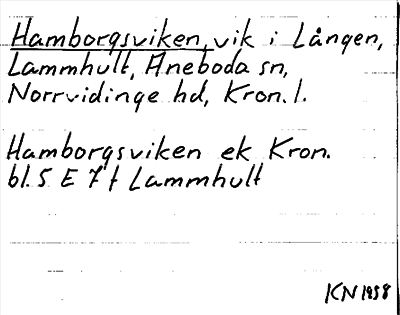 Hamborgsviken, vik i Lången,
Lammhult, Aneboda sn,
Norrvidinge hd, Kron. l.
Hamborgsviken ek Kron.
bl. 5 E 7 f Lammhult
KN 1958